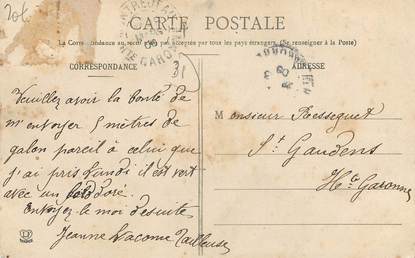 20f
CARTE POSTALE
La Correspondance au recto n'est pas acceptée par tous les pays étrangers (Se renseigner à la Poste)
CORRESPONDANCE
ADRESSE
31
Veuillez avoir la bonté de
m'envoyer 5 mètres de
galon pareil à celui que
j'ai pris Lundi il est vert
avec un doré.
Envoyez le moi desuite
Jeanne Lacome Tailleuse
Monsieur Resseguet
St Gaudens
Hte Garonne